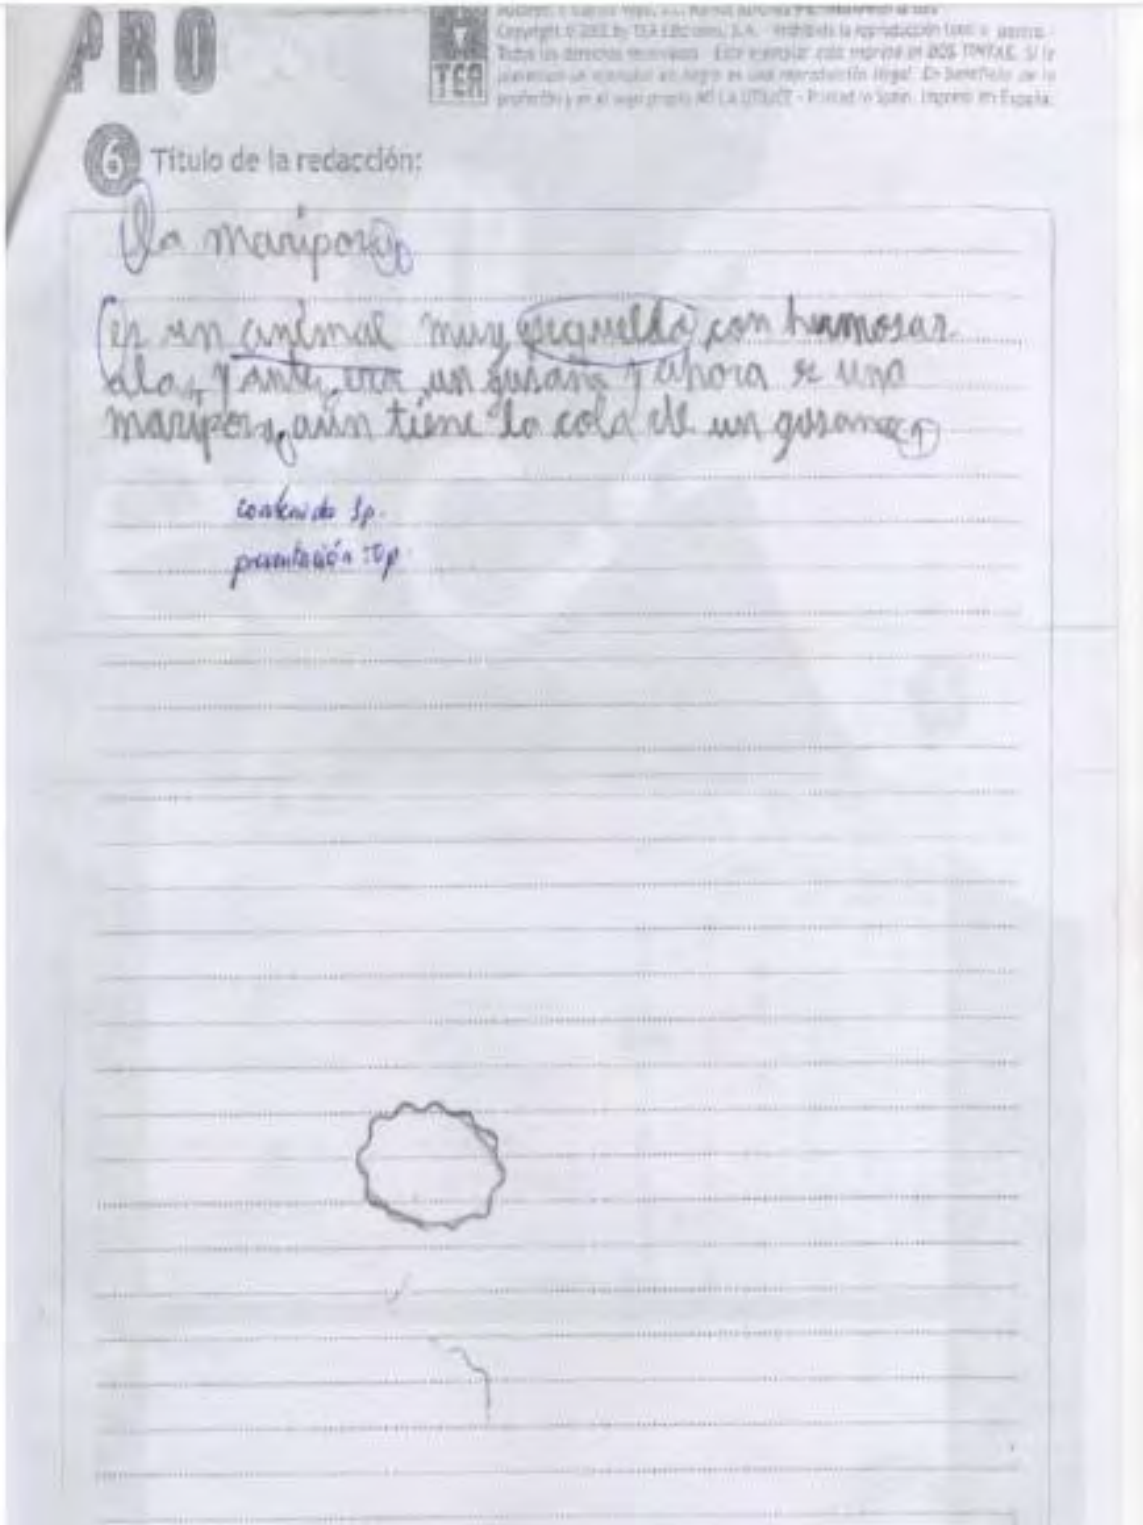 PRO
TEA
Copyright © 2002 by TEA Ediciones, S.A. - Prohibida la reproducción total o parcial.
Todos los derechos reservados - Este ejemplar está impreso en DOS TINTAS. Si le
presentan un ejemplar en negro es una reproducción ilegal. En beneficio de la
profesión y en el suyo propio NO LA UTILICE - Printed in Spain. Impreso en España.
6 Título de la redacción:
la mariposa
es un animal muy con hermosas
alas y antes era un gusano y ahora se una
mariposa, aún tiene la cola de un gusano
contenido 3p.
presentación: 0p.